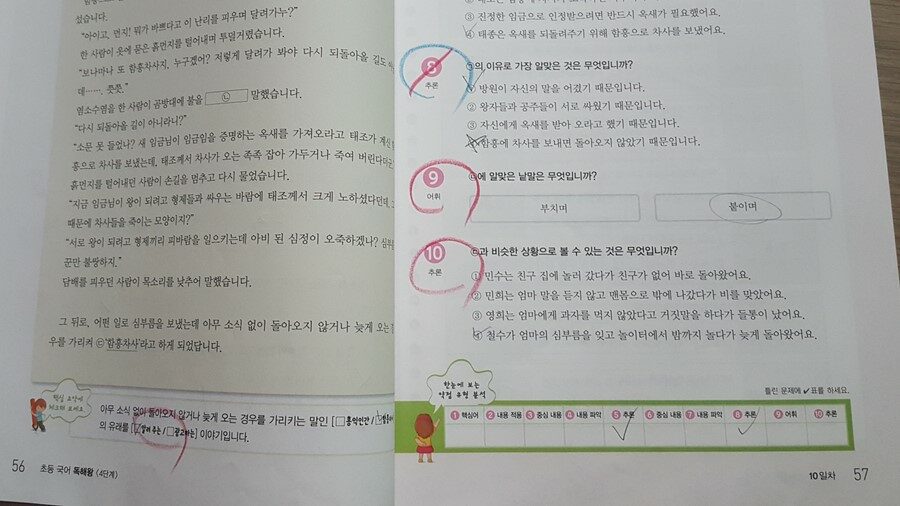 셨습니다.
"아이고, 먼지! 뭐가 바쁘다고 이 난리를 피우며 달려가누?"
한 사람이 옷에 묻은 흙먼지를 털어내며 투덜거렸습니다.
"보나마나 또 함흥차사지, 누구겠어? 저렇게 달려가 봐야 다시 되돌아올 길도
데……. 쯧쯧."
염소수염을 한 사람이 곰방대에 불을 ㉡ 말했습니다.
"다시 되돌아올 길이 아니라니?"
"소문 못 들었나? 새 임금님이 임금임을 증명하는 옥새를 가져오라고 태조가
흥으로 차사를 보냈는데, 태조께서 차사가 오는 족족 잡아 가두거나 죽여 버린다
흙먼지를 털어내던 사람이 손길을 멈추고 다시 물었습니다.
"지금 임금님이 왕이 되려고 형제들과 싸우는 바람에 태조께서 크게 노하셨다던데,
때문에 차사들을 죽이는 모양이지?"
"서로 왕이 되려고 형제끼리 피바람을 일으키는데 아비 된 심정이 오죽하겠나?
꾼만 불쌍하지."
담배를 피우던 사람이 목소리를 낮추어 말했습니다.
그 뒤로, 어떤 일로 심부름을 보냈는데 아무 소식 없이 돌아오지 않거나 늦게 오는
우를 가리켜 ㉢'함흥차사'라고 하게 되었답니다.
핵심 요약에
체크해 보세요
아무 소식 없이 돌아오지 않거나 늦게 오는 경우를 가리키는 말인 [ 홍익인간 /
의 유래를 [ 알려 주는 / 광고하는 ] 이야기입니다.
56 초등 국어 독해왕 (4단계)
③ 진정한 임금으로 인정받으려면 반드시 옥새가 필요했어요.
④ 태종은 옥새를 되돌려주기 위해 함흥으로 차사를 보냈어요.
8 추론
㉠의 이유로 가장 알맞은 것은 무엇입니까?
① 방원이 자신의 말을 어겼기 때문입니다.
② 왕자들과 공주들이 서로 싸웠기 때문입니다.
③ 자신에게 옥새를 받아 오라고 했기 때문입니다.
④ 함흥에 차사를 보내면 돌아오지 않았기 때문입니다.
9 어휘
㉡에 알맞은 낱말은 무엇입니까?
부치며 붙이며
10 추론
㉢과 비슷한 상황으로 볼 수 있는 것은 무엇입니까?
① 민수는 친구 집에 놀러 갔다가 친구가 없어 바로 돌아왔어요.
② 민희는 엄마 말을 듣지 않고 맨몸으로 밖에 나갔다가 비를 맞았어요.
③ 영희는 엄마에게 과자를 먹지 않았다고 거짓말을 하다가 들통이 났어요.
④ 철수가 엄마의 심부름을 잊고 놀이터에서 밤까지 놀다가 늦게 돌아왔어요.
한눈에 보는
약점 유형 분석
틀린 문제에 ✔표를 하세요.
1 핵심어 2 내용 적용 3 중심 내용 4 내용 파악 5 추론 6 중심 내용 7 내용 파악 8 추론 9 어휘 10 추론
10일차 57